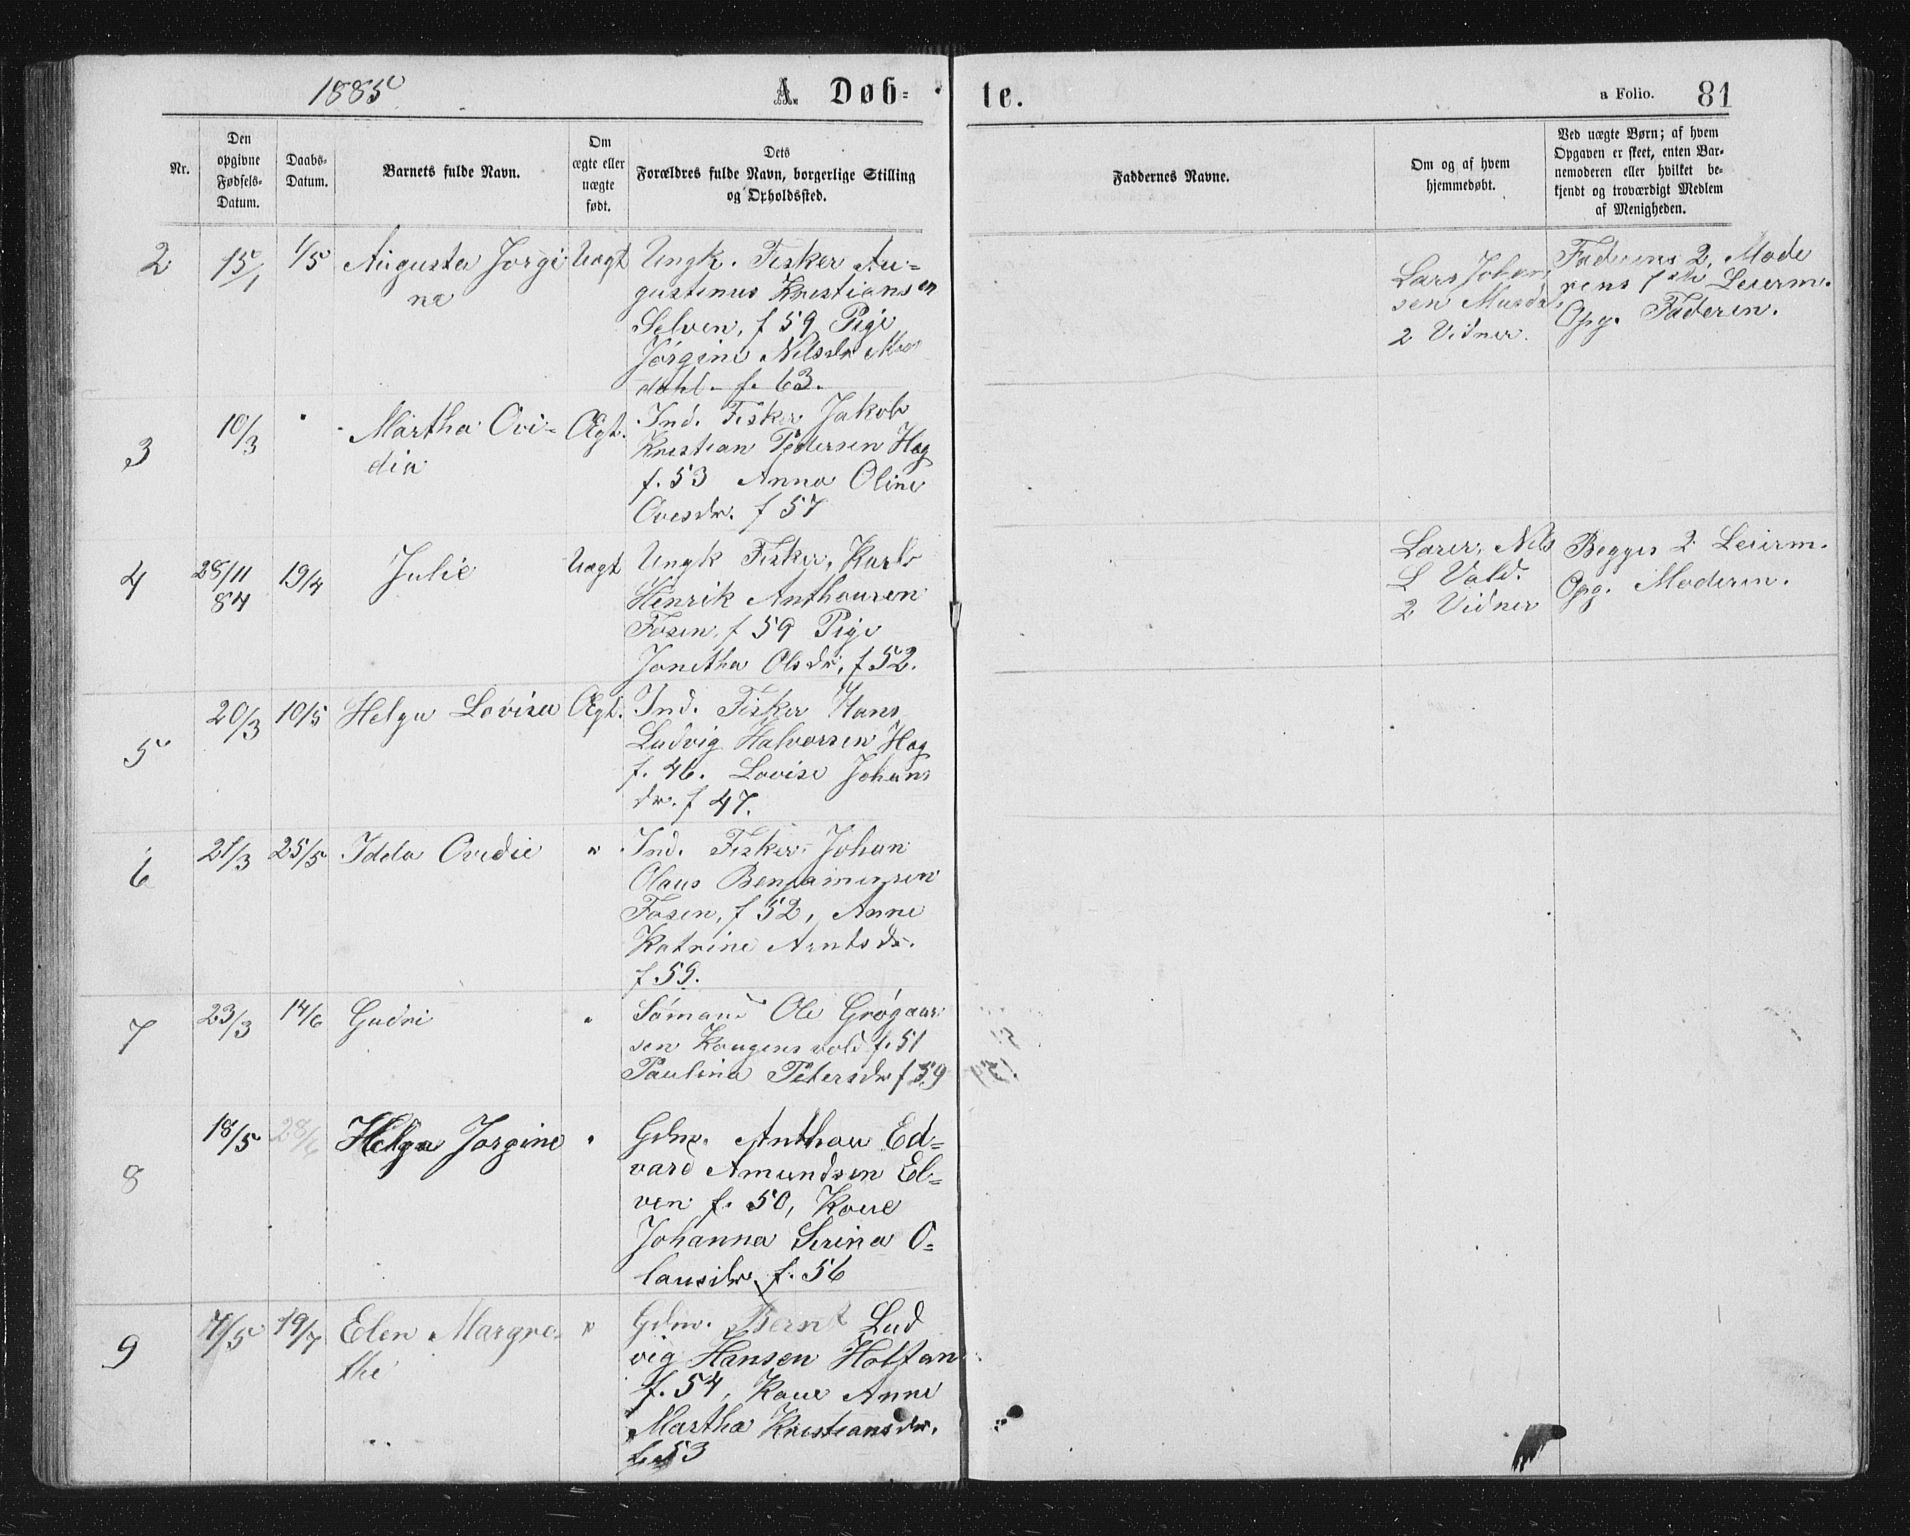 1885
A. Døb-
te.
a Folio. 81
Nr.
Den opgivne Fødsels-Datum.
Daabs-Datum.
Barnets fulde Navn.
Om ægte eller uægte født.
Dets Forældres fulde Navn, borgerlige Stilling og Opholdssted.
Faddernes Navne.
Om og af hvem hjemmedøbt.
Ved uægte Børn; af hvem Opgaven er skeet, enten Barnemoderen eller hvilket bekjendt og troværdigt Medlem af Menigheden.
2 15/1 1/5 Augusta Jorgi Uægt Ungk. Fisker Au-
ne gustinus Kristiansen
Selven, f 59 Pige
Jørgine Nilsdr
dahl. f. 63.
Lars Johan
sen
2 Vidner.
Faderens 2, Mode
rens 1ste Leierm.
Opg. Faderen.
3 10/3 Martha Ovi- Ægt. Ind. Fisker Jakob
dia Kristian Pedersen Hag
f. 53 Anna Oline
Ovesdr. f 57
4 28/11 19/4 Julie Uægt Ungk Fisker, Karl
84 Henrik Anthonsen
Fosen, f 59 Pige
Jonetha Olsdr, f 52.
Lærer, Nils
L Vald.
2 Vidner
Begges 2 Leierm.
Opg. Moderen.
5 20/3 10/5 Helga Lovisa Ægt. Ind. Fisker Hans
Ludvig Halvorsen Hag
f. 46. Lovise Johans
dr. f 47.
6 21/3 25/5 Idela Ovedie " Ind. Fisker Johan
Olaus Benjaminsen
Fosen, f 52, Anne
Katrine Arntsdr.
f 59.
7 23/3 14/6 Gudri " Sømand Ole Grøgaar
sen Kongensvold f. 51
Paulina Petersdr f 59
8 18/5 28/6 Helga Jorgine " Gdm. Anthon Ed-
vard Amundsen El-
ven f. 50, Kone
Johanna Serina O-
lausdr f. 56
9 /5 19/7 Elen Margre- " Gdm. Bernt Lud
the vig Hansen Holstan
f. 54, Kone Anne
Martha Kristiansdr.
f. 53